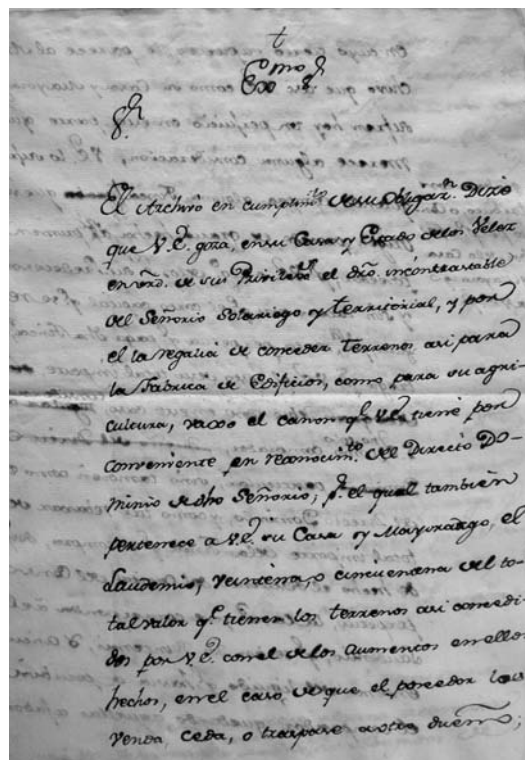 †
Exmo Sr
Sr.
El Archivo en cumplimto. de su obligan. Dize
que V.E. goza, en su Casa y Estado de los Velez
en vrd. de sus Privilegs. el dro. incontrastable
del Señorio Solariego y territorial, y por
el la regalia de conceder terrenos asi para
la Fabrica de Edificios, como para su agri-
cultura, vaxo el canon qe. V.E. tiene por
conveniente en reconocimto. del Directo Do-
minio de dho Señorio; pr. el qual tambien
pertenece a V.E. su Casa y Mayorazgo, el
Laudemio, veintena, o cincuentena del to-
tal valor qe. tienen los terrenos asi concedi-
dos por V.E. con el de los aumentos en ellos
hechos, en el caso de que el poseedor los
venda, ceda, o traspase a otro dueño;